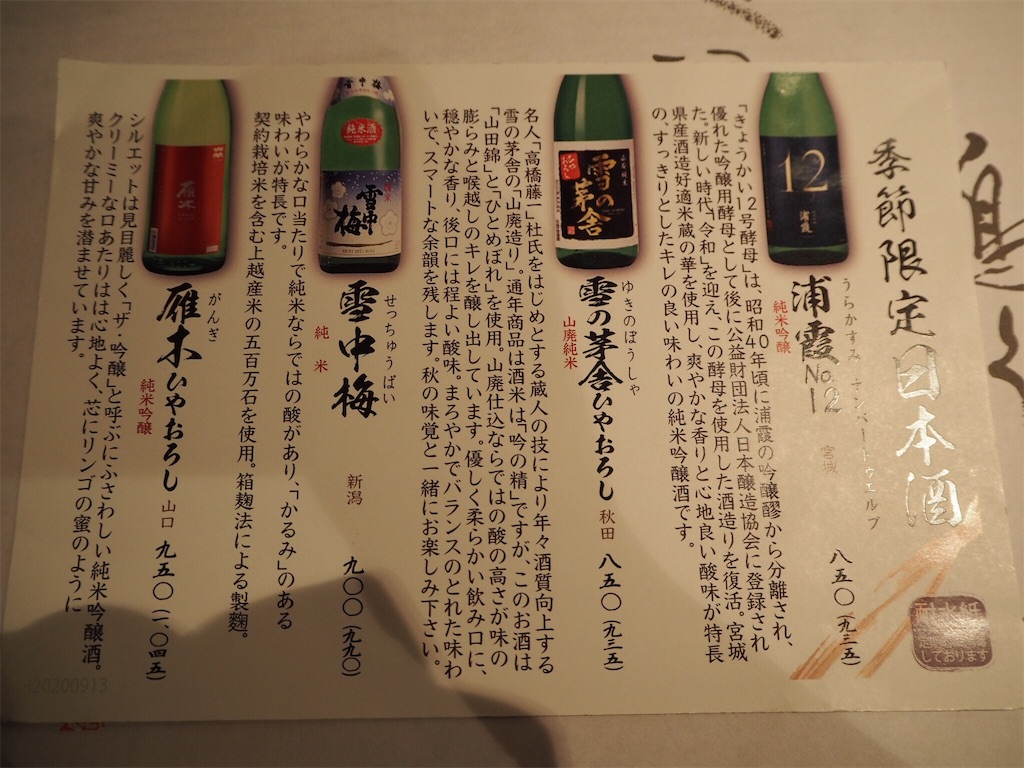 季節限定日本酒
うらかすみ ナンバートゥエルブ
浦霞 No.12
純米吟醸
宮城
八五〇(九三五)
「きょうかい12号酵母」は、昭和40年頃に浦霞の吟醸醪から分離され、
優れた吟醸用酵母として後に公益財団法人日本醸造協会に登録され
た。新しい時代、「令和」を迎え、この酵母を使用した酒造りを復活。宮城
県産酒造好適米蔵の華を使用し、爽やかな香りと心地良い酸味が特長
の、すっきりとしたキレの良い味わいの純米吟醸酒です。
12
浦霞
ゆきのぼうしゃ
雪の茅舎ひやおろし
山廃純米
秋田
八五〇(九三五)
名人「高橋藤一」杜氏をはじめとする蔵人の技により年々酒質向上する
雪の茅舎の「山廃造り」。通年商品は酒米は「吟の精」ですが、このお酒は
「山田錦」と「ひとめぼれ」を使用。山廃仕込ならではの酸の高さが味の
膨らみと喉越しのキレを醸し出しています。優しく柔らかい飲み口に、
穏やかな香り、後口には程よい酸味、まろやかでバランスのとれた味わ
いで、スマートな余韻を残します。秋の味覚と一緒にお楽しみ下さい。
山廃純米
ひやおろし
雪の茅舎
せっちゅうばい
雪中梅
純米
新潟
九〇〇(九九〇)
やわらかな口当たりで純米ならではの酸があり、「かるみ」のある
味わいが特長です。
契約栽培米を含む上越産米の五百万石を使用。箱麹法による製麹。
雪中梅
純米酒
雪中梅
がんぎ
雁木ひやおろし
純米吟醸
山口
九五〇(一、〇四五)
シルエットは見目麗しく「ザ・吟醸」と呼ぶにふさわしい純米吟醸酒。
クリーミーな口あたりはは心地よく、芯にリンゴの蜜のように
爽やかな甘みを潜ませています。
雁木
耐水紙
しております
t20200913